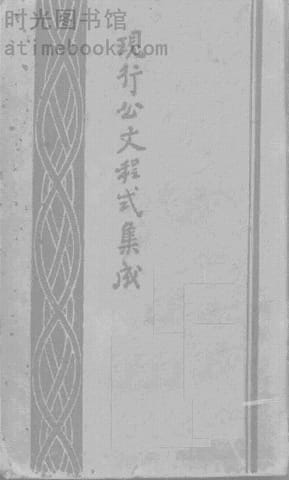 时光图书馆
atimebook.com
現行公文程式集成